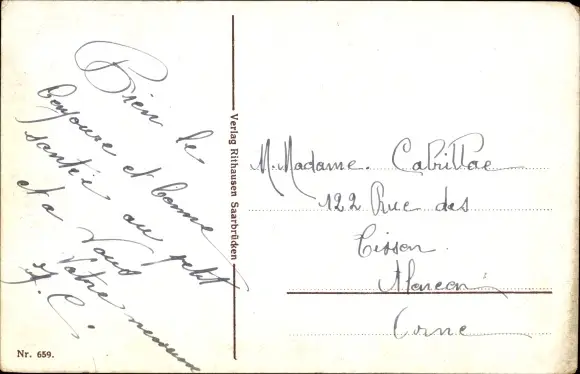 Bien le
bonjour et bonne
santée au petit
et a Vous
Votre neveu
A. C.
Verlag Rithausen Saarbrücken
M. Madame. Cabrillac
122 Rue des
Tisson
Alencon
Orne
Nr. 659.